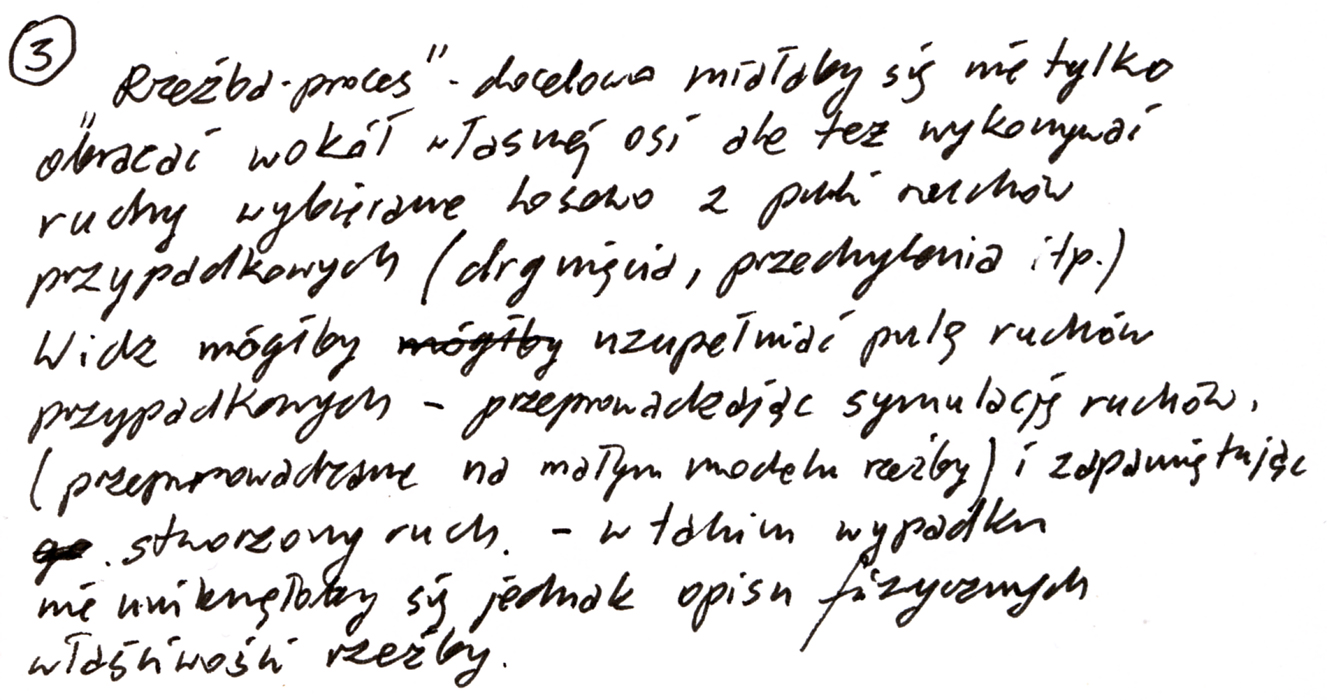 ③ „Rzeźba-proces" - docelowo miałaby się nie tylko
obracać wokół własnej osi ale też wykonywać
ruchy wybierane losowo z puli ruchów
przypadkowych (drgnięcia, przechylenia itp.)
Widz mógłby mógłby uzupełniać pulę ruchów
przypadkowych - przeprowadzając symulację ruchów.
(przeprowadzane na małym modelu rzeźby) i zapamiętując
stworzony ruch. - w takim wypadku
nie uniknęłoby się jednak opisu fizycznych
właściwości rzeźby.